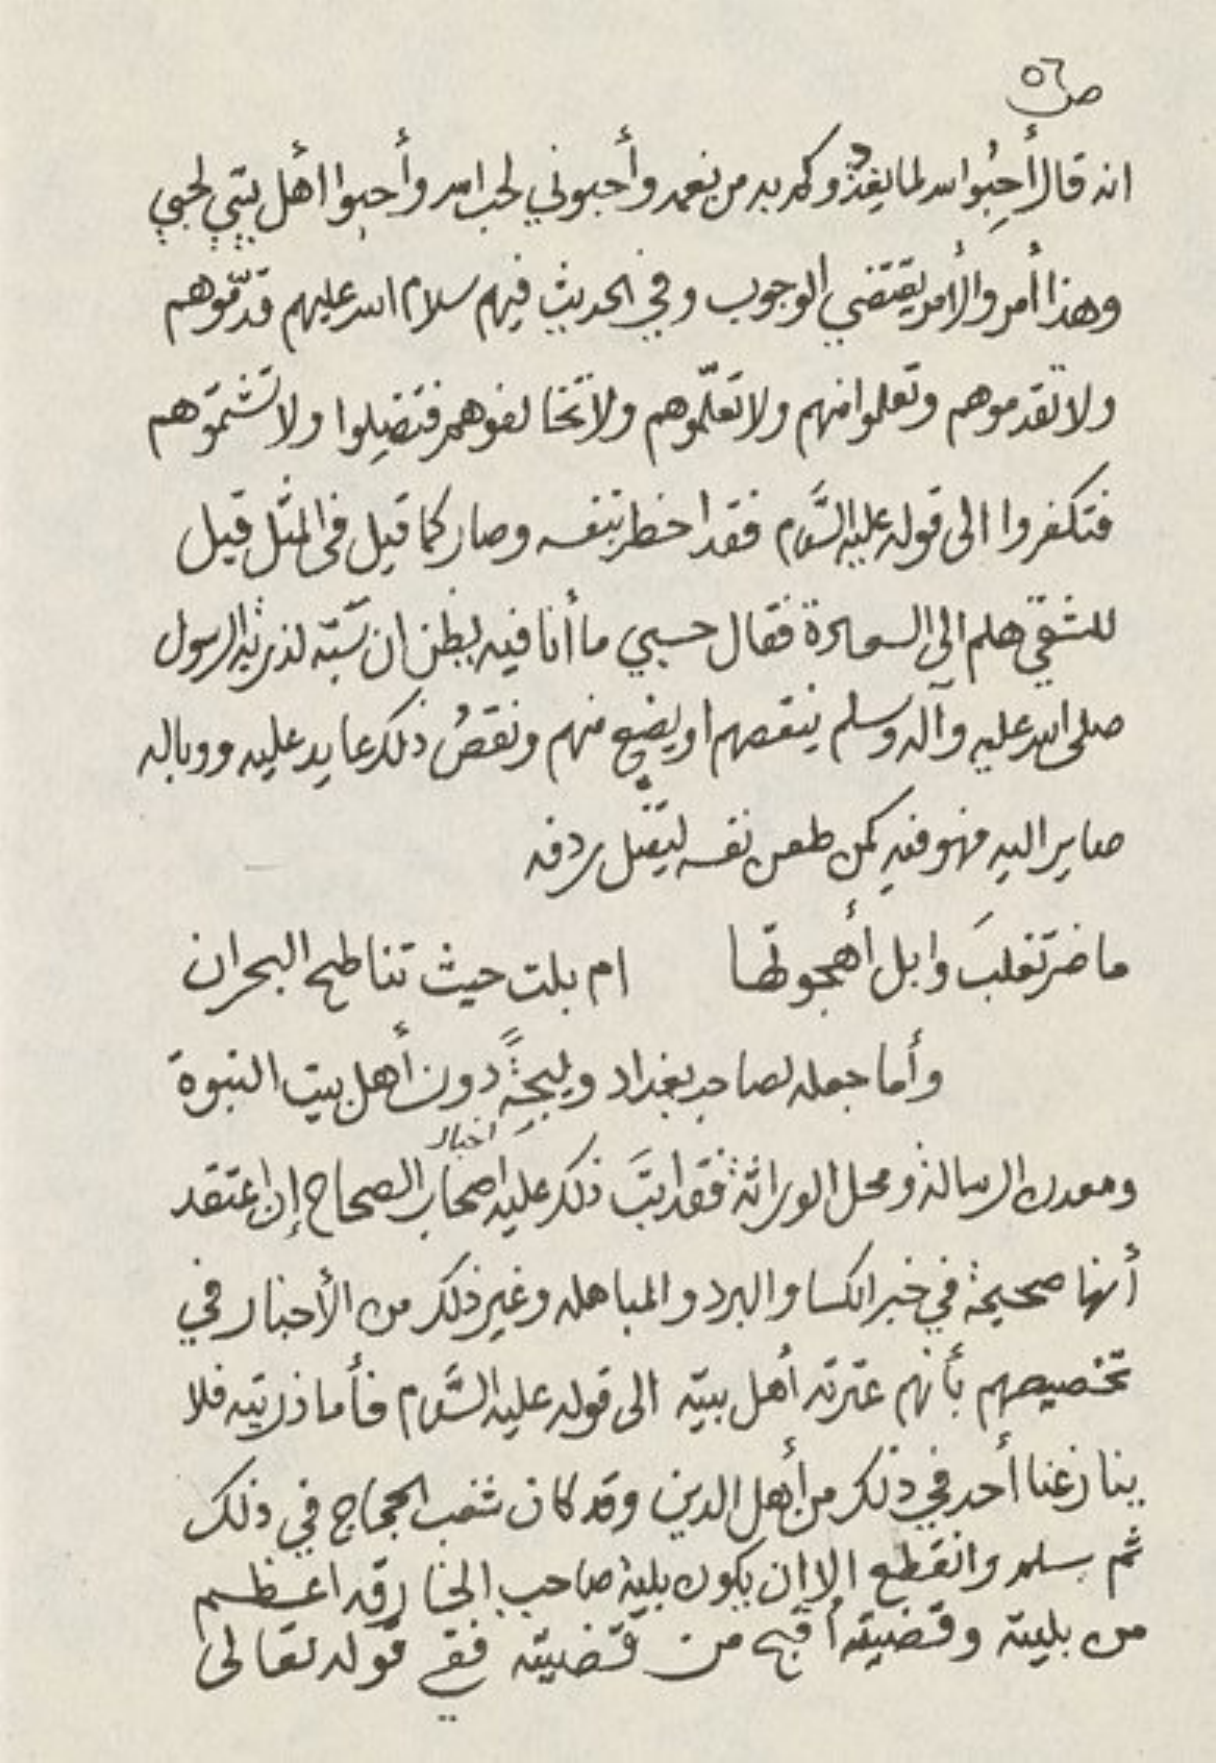 ص ٥٦
انه قال أحِبُوا الله لما يغذُوكم به من نعمه وأحبوني لحب الله وأحبوا أهل بيتي لحبي
وهذا أمر والأمر يقتضي الوجوب وفي الحديث فيهم سلام الله عليهم قدّموهم
ولا تقدموهم وتعلموا منهم ولا تعلّموهم ولا تخالفوهم فتضِلوا ولا تشتموهم
فتكفروا الى قوله عليه السَّلام فقد اخطر بنفسه وصار كما قيل في المثل قيل
للشقي هلم الى السعادة فقال حسبي ما أنا فيه يظن ان سَبّه لذرية الرسول
صلى الله عليه وآله وسلم ينقصهم او يضع منهم ونقصُ ذلك عايد عليه ووباله
صاير اليه فهو فيه كمن طعن نفسه ليقتل ردفه
ما ضر تغلبَ وابل أهجوتها ام بلت حيث تناطح البحران
وأما جعله لصاحب بغداد وليجةً دون أهل بيت النبوة
ومعدن الرسالة ومحل الوراثة فقد أبتَ ذلك عليه اصحاب الصحاح إن اعتقد
اخبار
أنها صحيحة في خبر الكسا والبرد والمباهله وغير ذلك من الأخبار في
تخصيصهم بأنهم عترته أهل بيته الى قوله عليه السَّلام فأما ذريته فلا
ينازعنا أحد في ذلك من أهل الدين وقد كان شغب الحجاج في ذلك
ثم سلم وانقطع الا ان يكون بلية صاحب الخارقه اعظم
من بليته وقضيته أقبح من قضيته ففي قوله تعالى